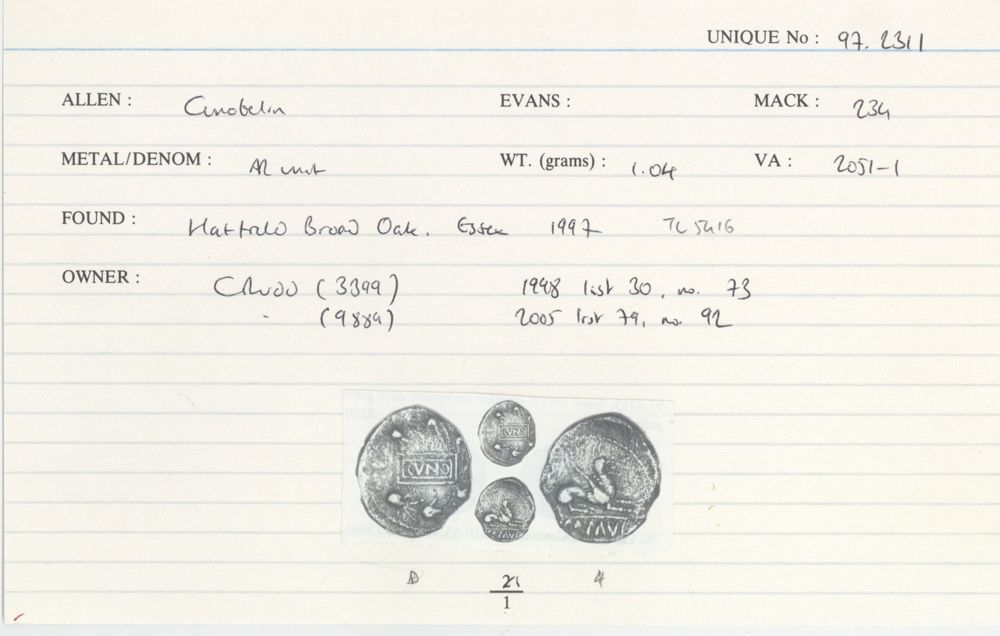 UNIQUE No : 97. 2311
ALLEN : Cunobelin EVANS : MACK : 234
METAL/DENOM : AR unit WT. (grams) : 1.04 VA : 2051-1
FOUND : Hatfield Broad Oak. Essex 1997 TL 5416
OWNER : CRUDD (3399) 1998 list 30, no. 73
(9889) 2005 list 79, no. 92
CVNO
TAVI
A 21 4
1